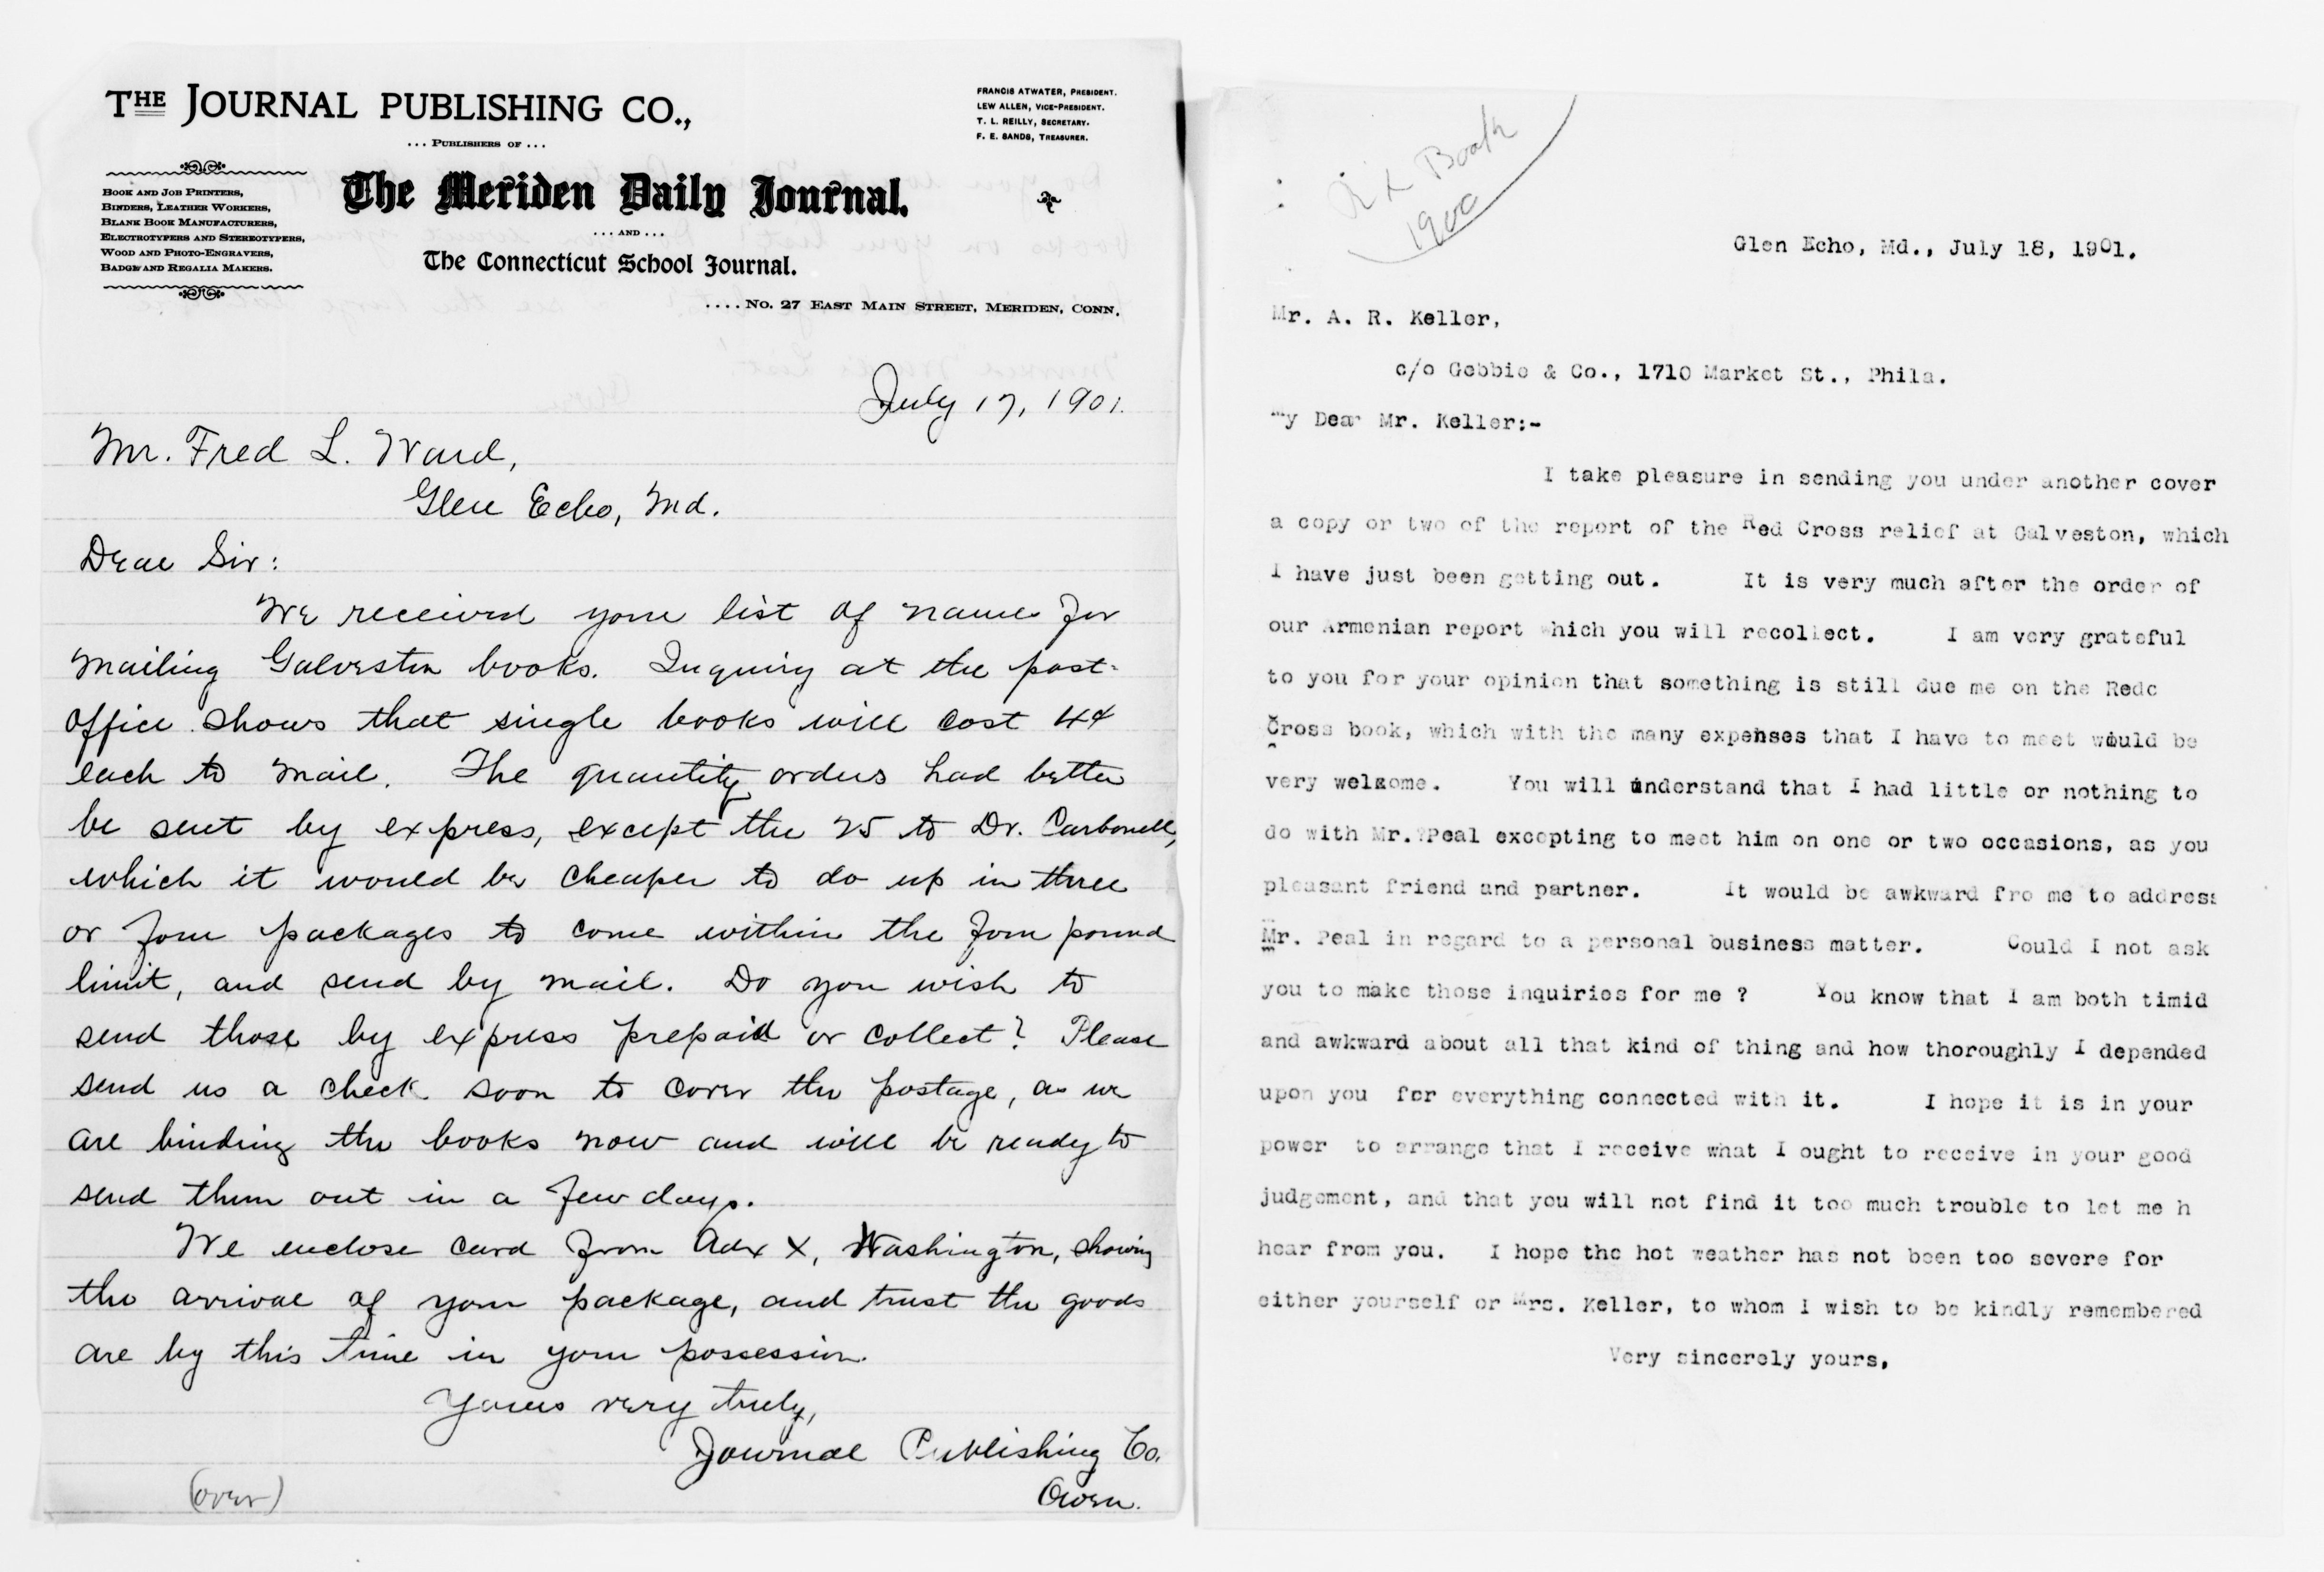 THE JOURNAL PUBLISHING CO.,
... PUBLISHERS OF ...
FRANCIS ATWATER, PRESIDENT.
LEW ALLEN, VICE-PRESIDENT.
T. L. REILLY, SECRETARY.
F. E. SANDS, TREASURER.
BOOK AND JOB PRINTERS,
BINDERS, LEATHER WORKERS,
BLANK BOOK MANUFACTURERS,
ELECTROTYPERS AND STEREOTYPERS,
WOOD AND PHOTO-ENGRAVERS,
BADGE AND REGALIA MAKERS.
The Meriden Daily Journal.
... AND ...
The Connecticut School Journal.
.... No. 27 EAST MAIN STREET, MERIDEN, CONN.
July 17, 1901.
Mr. Fred L. Ward,
Glen Echo, Md.
Dear Sir:
We received your list of names for
mailing Galveston books. Inquiry at the post-
office shows that single books will cost 4¢
each to mail. The quantity orders had better
be sent by express, except the 25 to Dr. Carbonell,
which it would be cheaper to do up in three
or four packages to come within the four pound
limit, and send by mail. Do you wish to
send those by express prepaid or collect? Please
send us a check soon to cover the postage, as we
are binding the books now and will be ready to
send them out in a few days.
We enclose card from Adx X, Washington, showing
the arrival of your package, and trust the goods
are by this time in your possession.
Yours very truly,
Journal Publishing Co.
Owen.
(over)
1900
Glen Echo, Md., July 18, 1901.
Mr. A. R. Keller,
c/o Gebbie & Co., 1710 Market St., Phila.
My Dear Mr. Keller:-
I take pleasure in sending you under another cover
a copy or two of the report of the Red Cross relief at Galveston, which
I have just been getting out. It is very much after the order of
our Armenian report which you will recollect. I am very grateful
to you for your opinion that something is still due me on the Redc
Cross book, which with the many expenses that I have to meet would be
very welcome. You will understand that I had little or nothing to
do with Mr. Peal excepting to meet him on one or two occasions, as you
pleasant friend and partner. It would be awkward fro me to address
Mr. Peal in regard to a personal business matter. Could I not ask
you to make those inquiries for me ? You know that I am both timid
and awkward about all that kind of thing and how thoroughly I depended
upon you for everything connected with it. I hope it is in your
power to arrange that I receive what I ought to receive in your good
judgement, and that you will not find it too much trouble to let me h
hear from you. I hope the hot weather has not been too severe for
either yourself or Mrs. Keller, to whom I wish to be kindly remembered
Very sincerely yours,